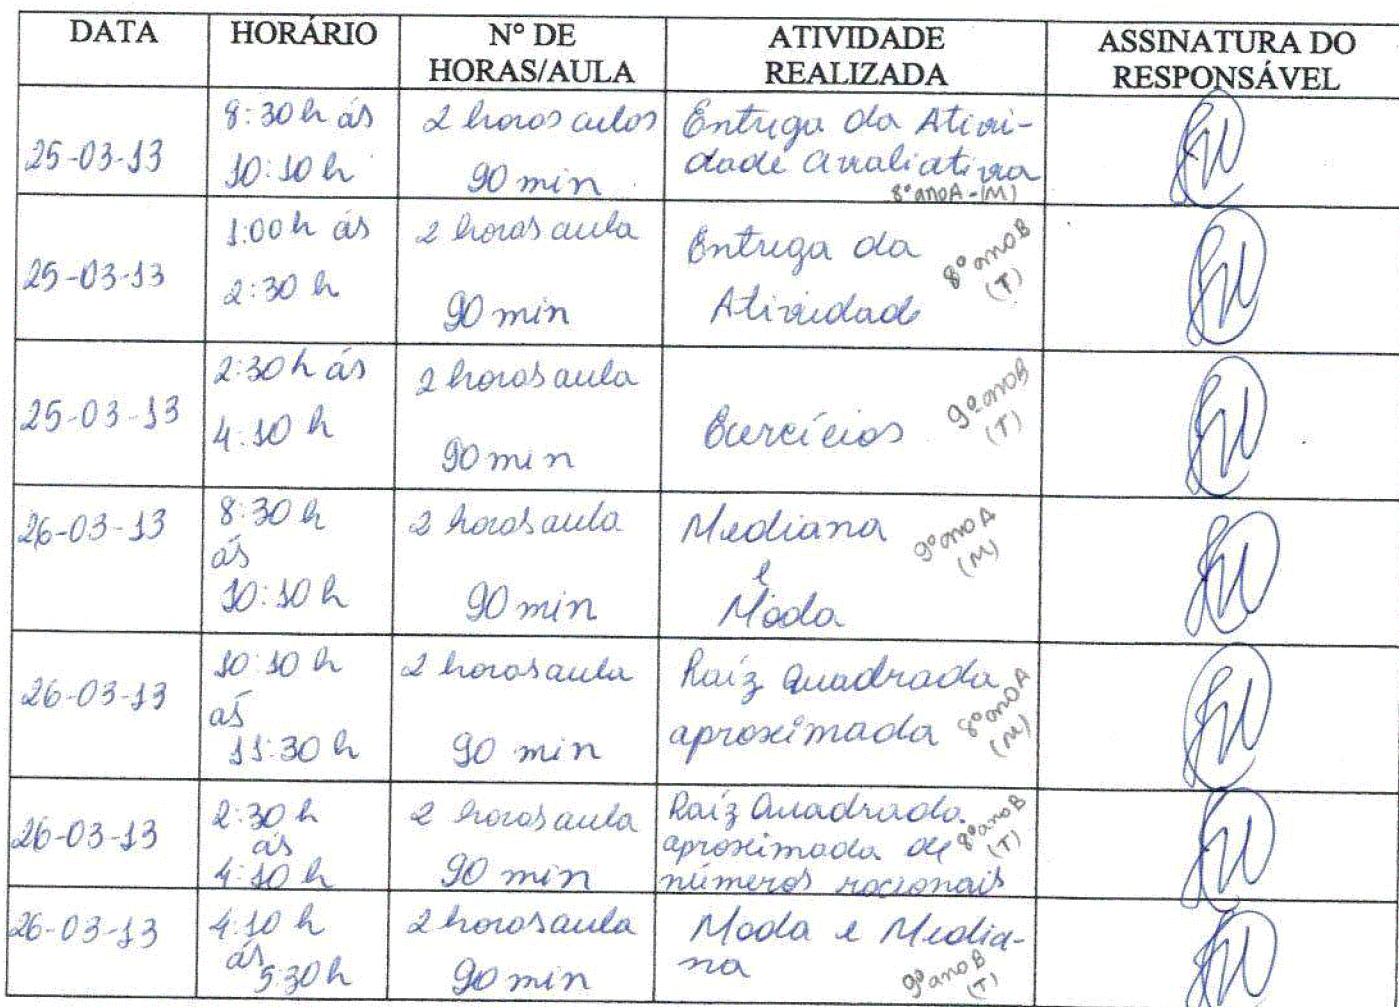 DATA
HORÁRIO
Nº DE
HORAS/AULA
ATIVIDADE
REALIZADA
ASSINATURA DO
RESPONSÁVEL
25-03-13
8:30 h ás
10:10 h
2 horas aulas
90 min
Entrega da Ativi-
dade avaliativa
8º ano A - (M)
25-03-13
1:00 h ás
2:30 h
2 horas aula
90 min
Entrega da
Atividade
8º ano B
(T)
25-03-13
2:30 h ás
4:10 h
2 horas aula
90 min
Exercícios
9º ano B
(T)
26-03-13
8:30 h
ás
10:10 h
2 horas aula
90 min
Mediana
e
Moda
9º ano A
(M)
26-03-13
10:10 h
ás
11:30 h
2 horas aula
90 min
Raíz Quadrada
aproximada
8º ano A
(M)
26-03-13
2:30 h
ás
4:10 h
2 horas aula
90 min
Raíz Quadrada
aproximada de
números racionais
8º ano B
(T)
26-03-13
4:10 h
ás
5:30 h
2 horas aula
90 min
Moda e Media-
na
9º ano B
(T)